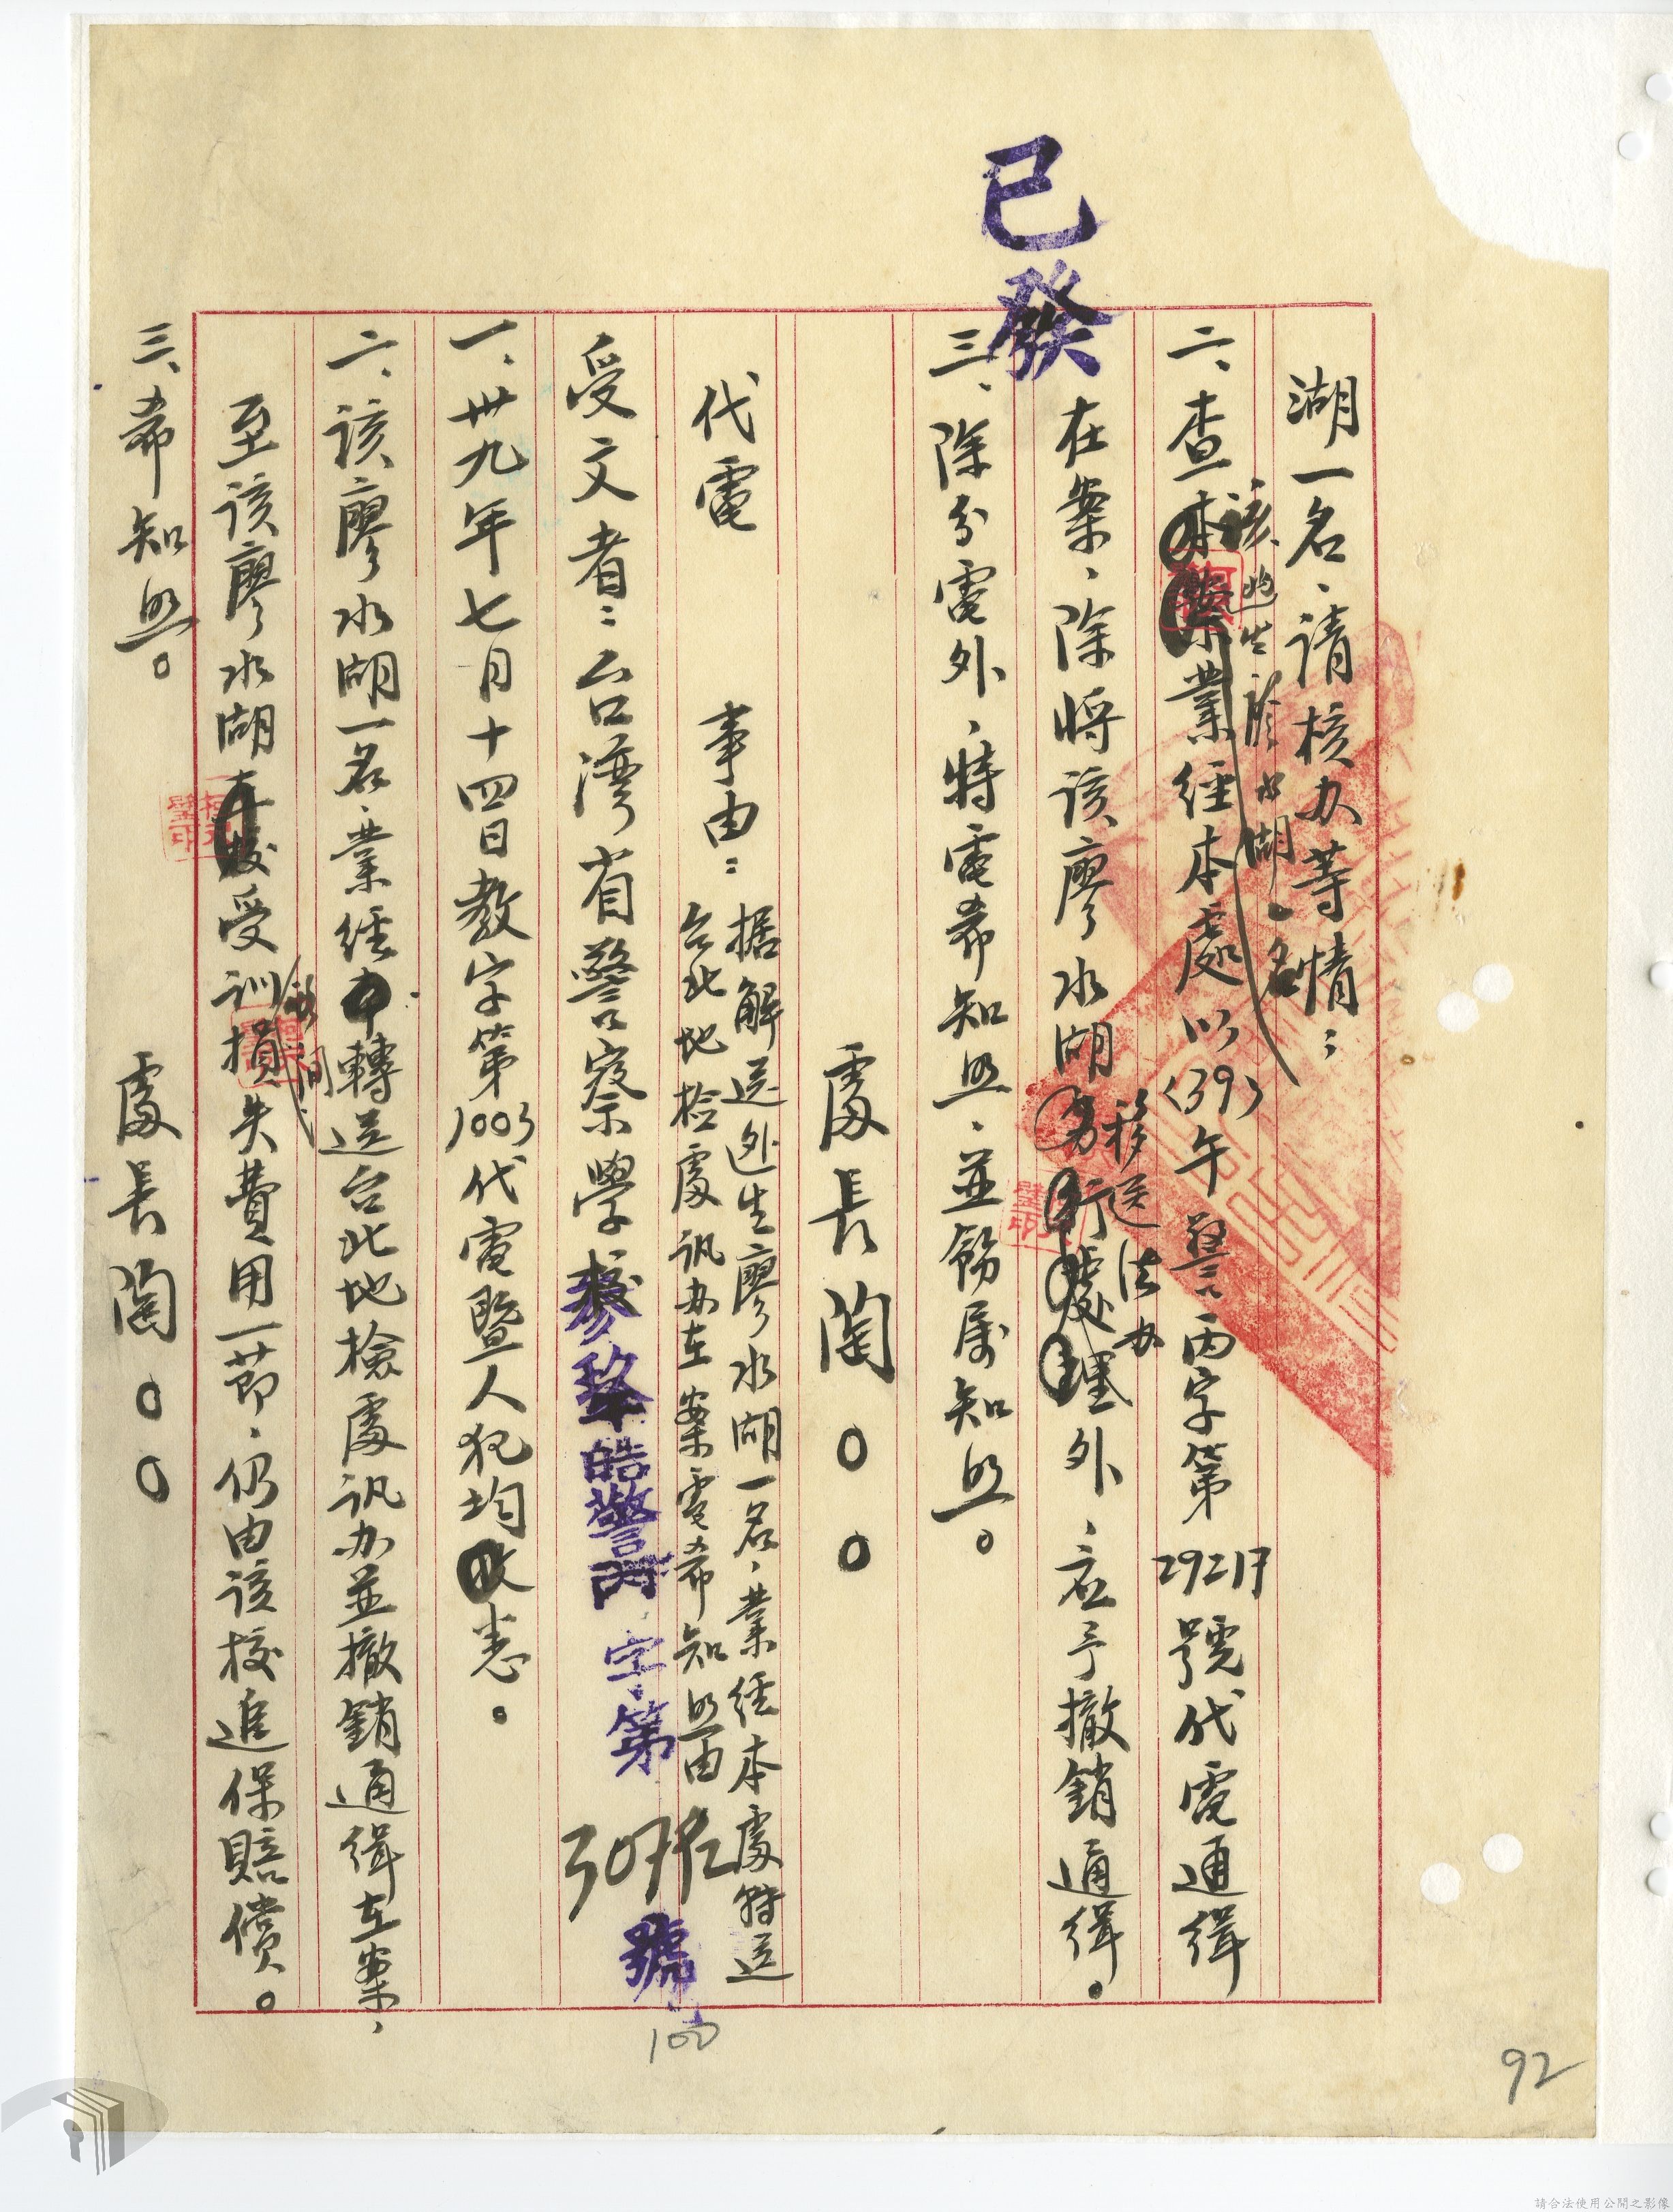 已發
湖一名、請核办等情：
二、查該逃生廖水湖一名業經本處以(39)午警丙字第2921号號代電通緝
在案、除將該廖水湖移送法办外、应予撤銷通緝。
三、除分電外、特電希知照、並飭屬知照。
處長陶〇〇
代電 事由：据解送逃生廖水湖一名、業經本處轉送
台北地檢處訊办在案電希知照由
受文者：台湾省警察學校
參玖年皓警丙字第307号號
一、卅九年七月十四日教字第1003代電暨人犯均悉。
二、該廖水湖一名、業經轉送台北地檢處訊办並撤銷通緝在案、
至該廖水湖受訓期間損失費用一節、仍由該校追保賠償。
三、希知照。
處長陶〇〇
100
92
請合法使用公開之影像